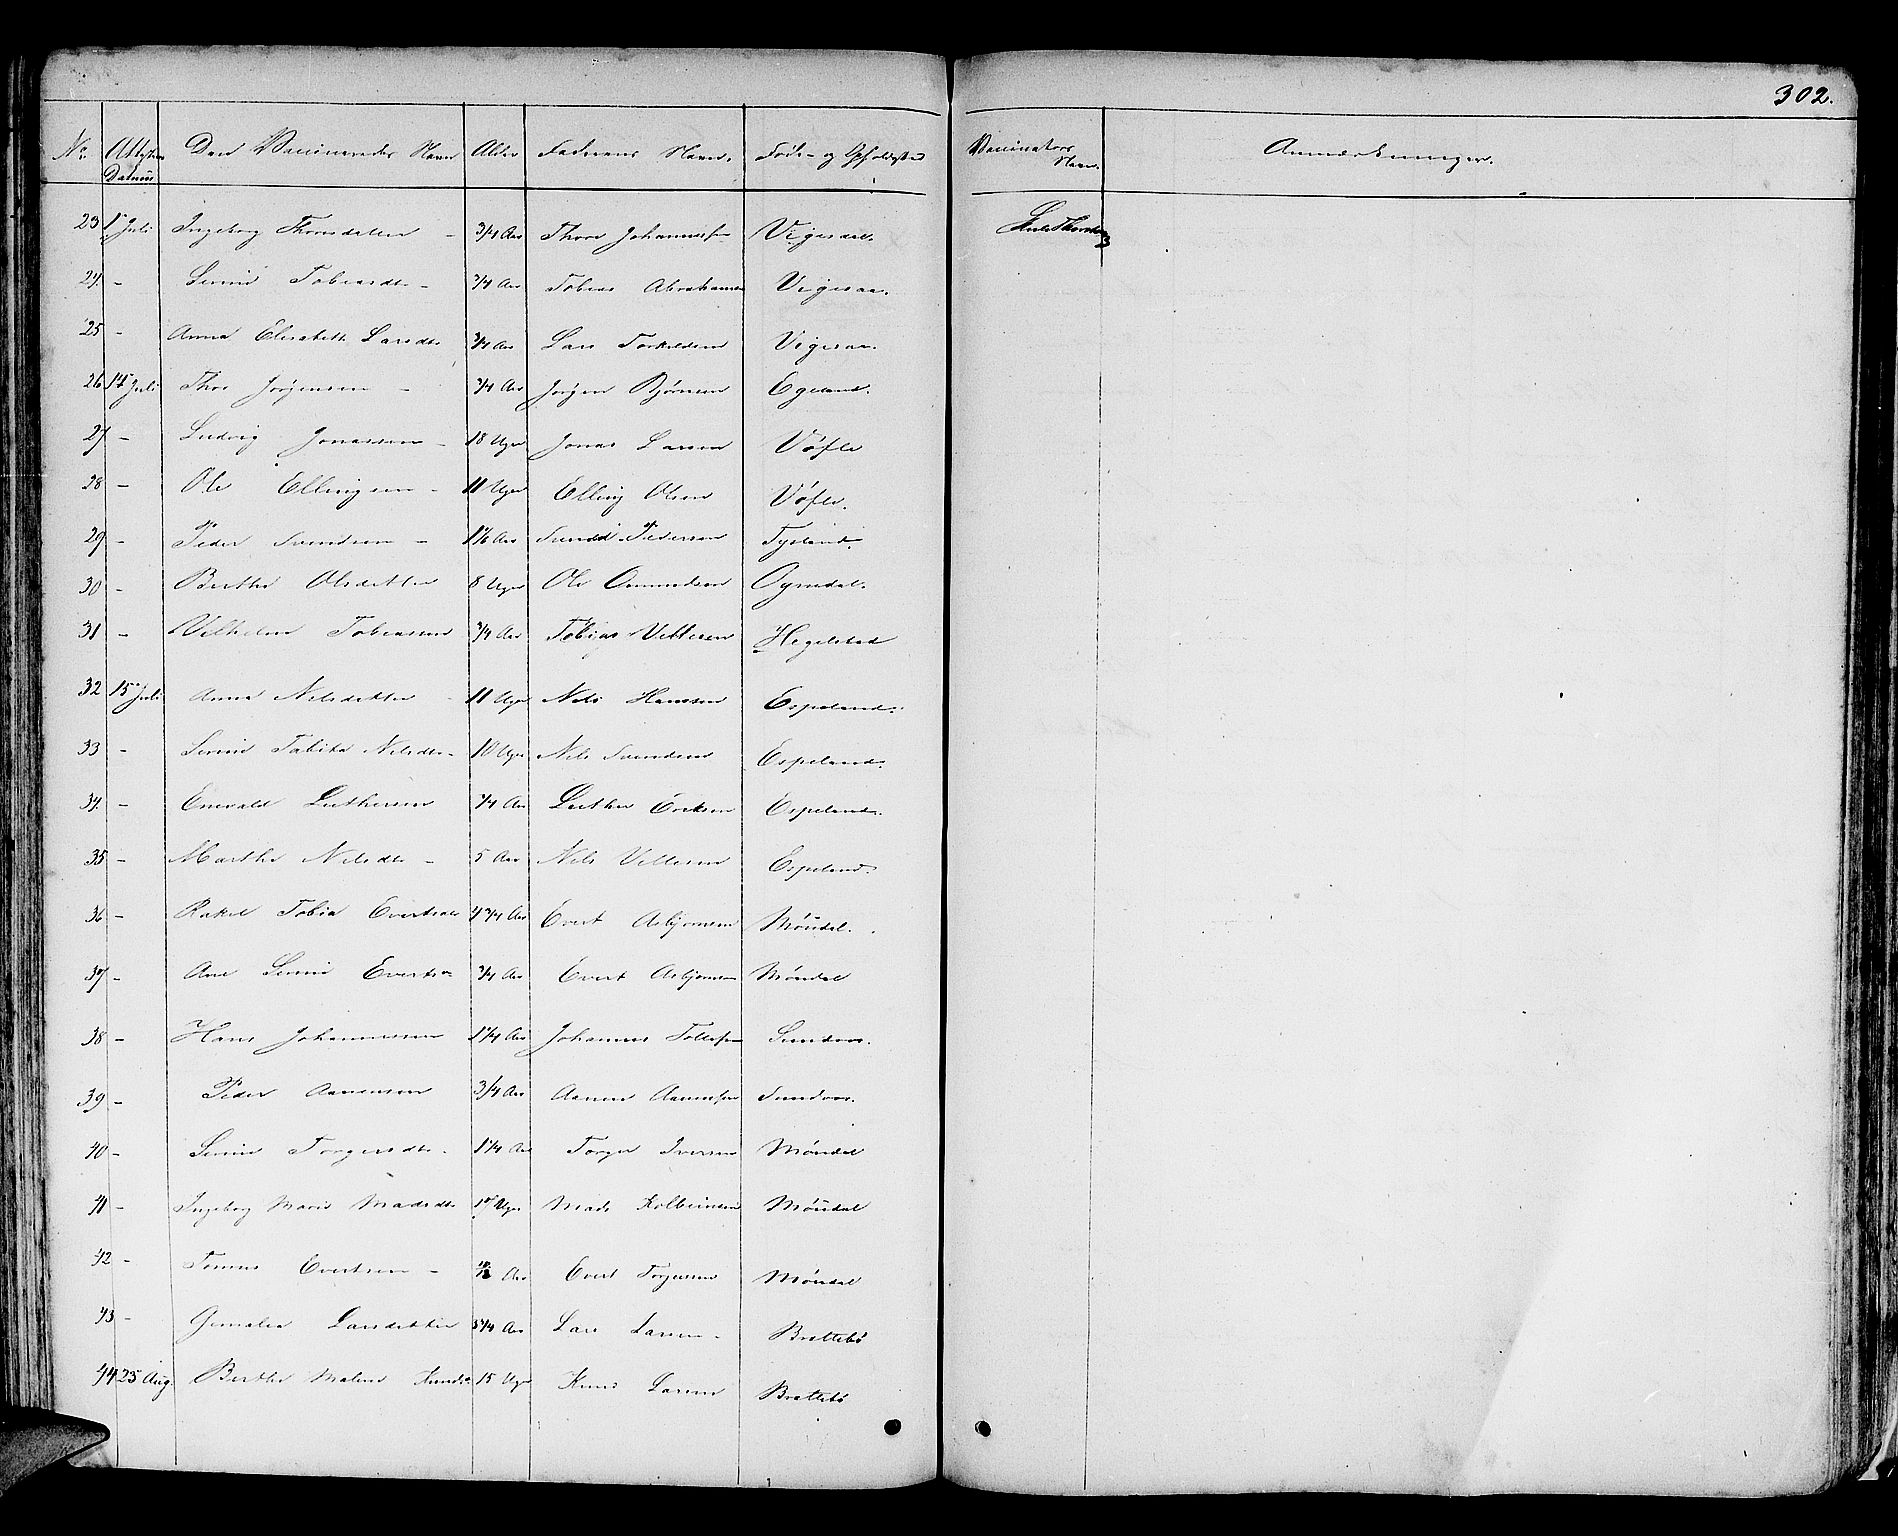 302.
No. Attestens Datum Den Vaccineredes Navn Alder Faderens Navn. Føde- og Opholdssted Vaccinators Navn. Anmærkninger.
23 1 Juli Ingeborg Thorsdatter - 3/4 Aar Thore Johannessen Vigesdal.
24. - Serine Tobiasdtr - 3/4 Aar Tobias Abrahamsen Vigesaa.
25 - Anna Elisabeth Larsdtr 3/4 Aar Lars Torkildsen Vigesaa.
26 14 Juli Thor Jørgensen - 3/4 Aar Jørgen Bjørnsen Egeland.
27 - Ludvig Jonassen - 18 Uger Jonas Larsen
28 - Ole Ellingsen - 11 Uger Elling Olsen
29 - Peder Svendsen - Aar Svend Pedersen Tysland.
30 - Berthe Olsdatter 8 Uger Ole Ommundsen
31 - Vilhelm Tobiassen 3/4 Aar Tobias Hegelstad
32 15 Juli Anna Nilsdatter - 11 Uger Nils Hansen Espeland.
33 - Serine Tabita Nilsdtr - 10 Uger Nils Svendsen Espeland.
34. - Enevald Luthersen 3/4 Aar Luther Eriksen Espeland.
35 - Marthe Nilsdtr - 5 Aar Nils Espeland.
36 - Rakel Tobia 4 3/4 Aar Evert Asbjørnsen Mõndal.
37 - Ane Serine 3/4 Aar Evert Asbjørnsen Møndal
38 - Hans Johannessen 1 1/4 Aar Johannes Tollefsen Sundvor.
39 - Peder Aanensen 3/4 Aar Aanen Aanensen Sundvor.
40 - Serine Torgersdtr. 1 1/4 Aar Torger Iversen Møndal
41 - Ingeborg Marie Madsdtr 17 Uger Mads Kolbeinsen Møndal
42 - Tønnes Evertsen - Aar Evert Torgersen Møndal
43 - Gemalie Larsdatter Aar Lars Larsen - Brettebø
44 25 Aug. Berthe Malene 15 Uger Knud Larsen Brettebø